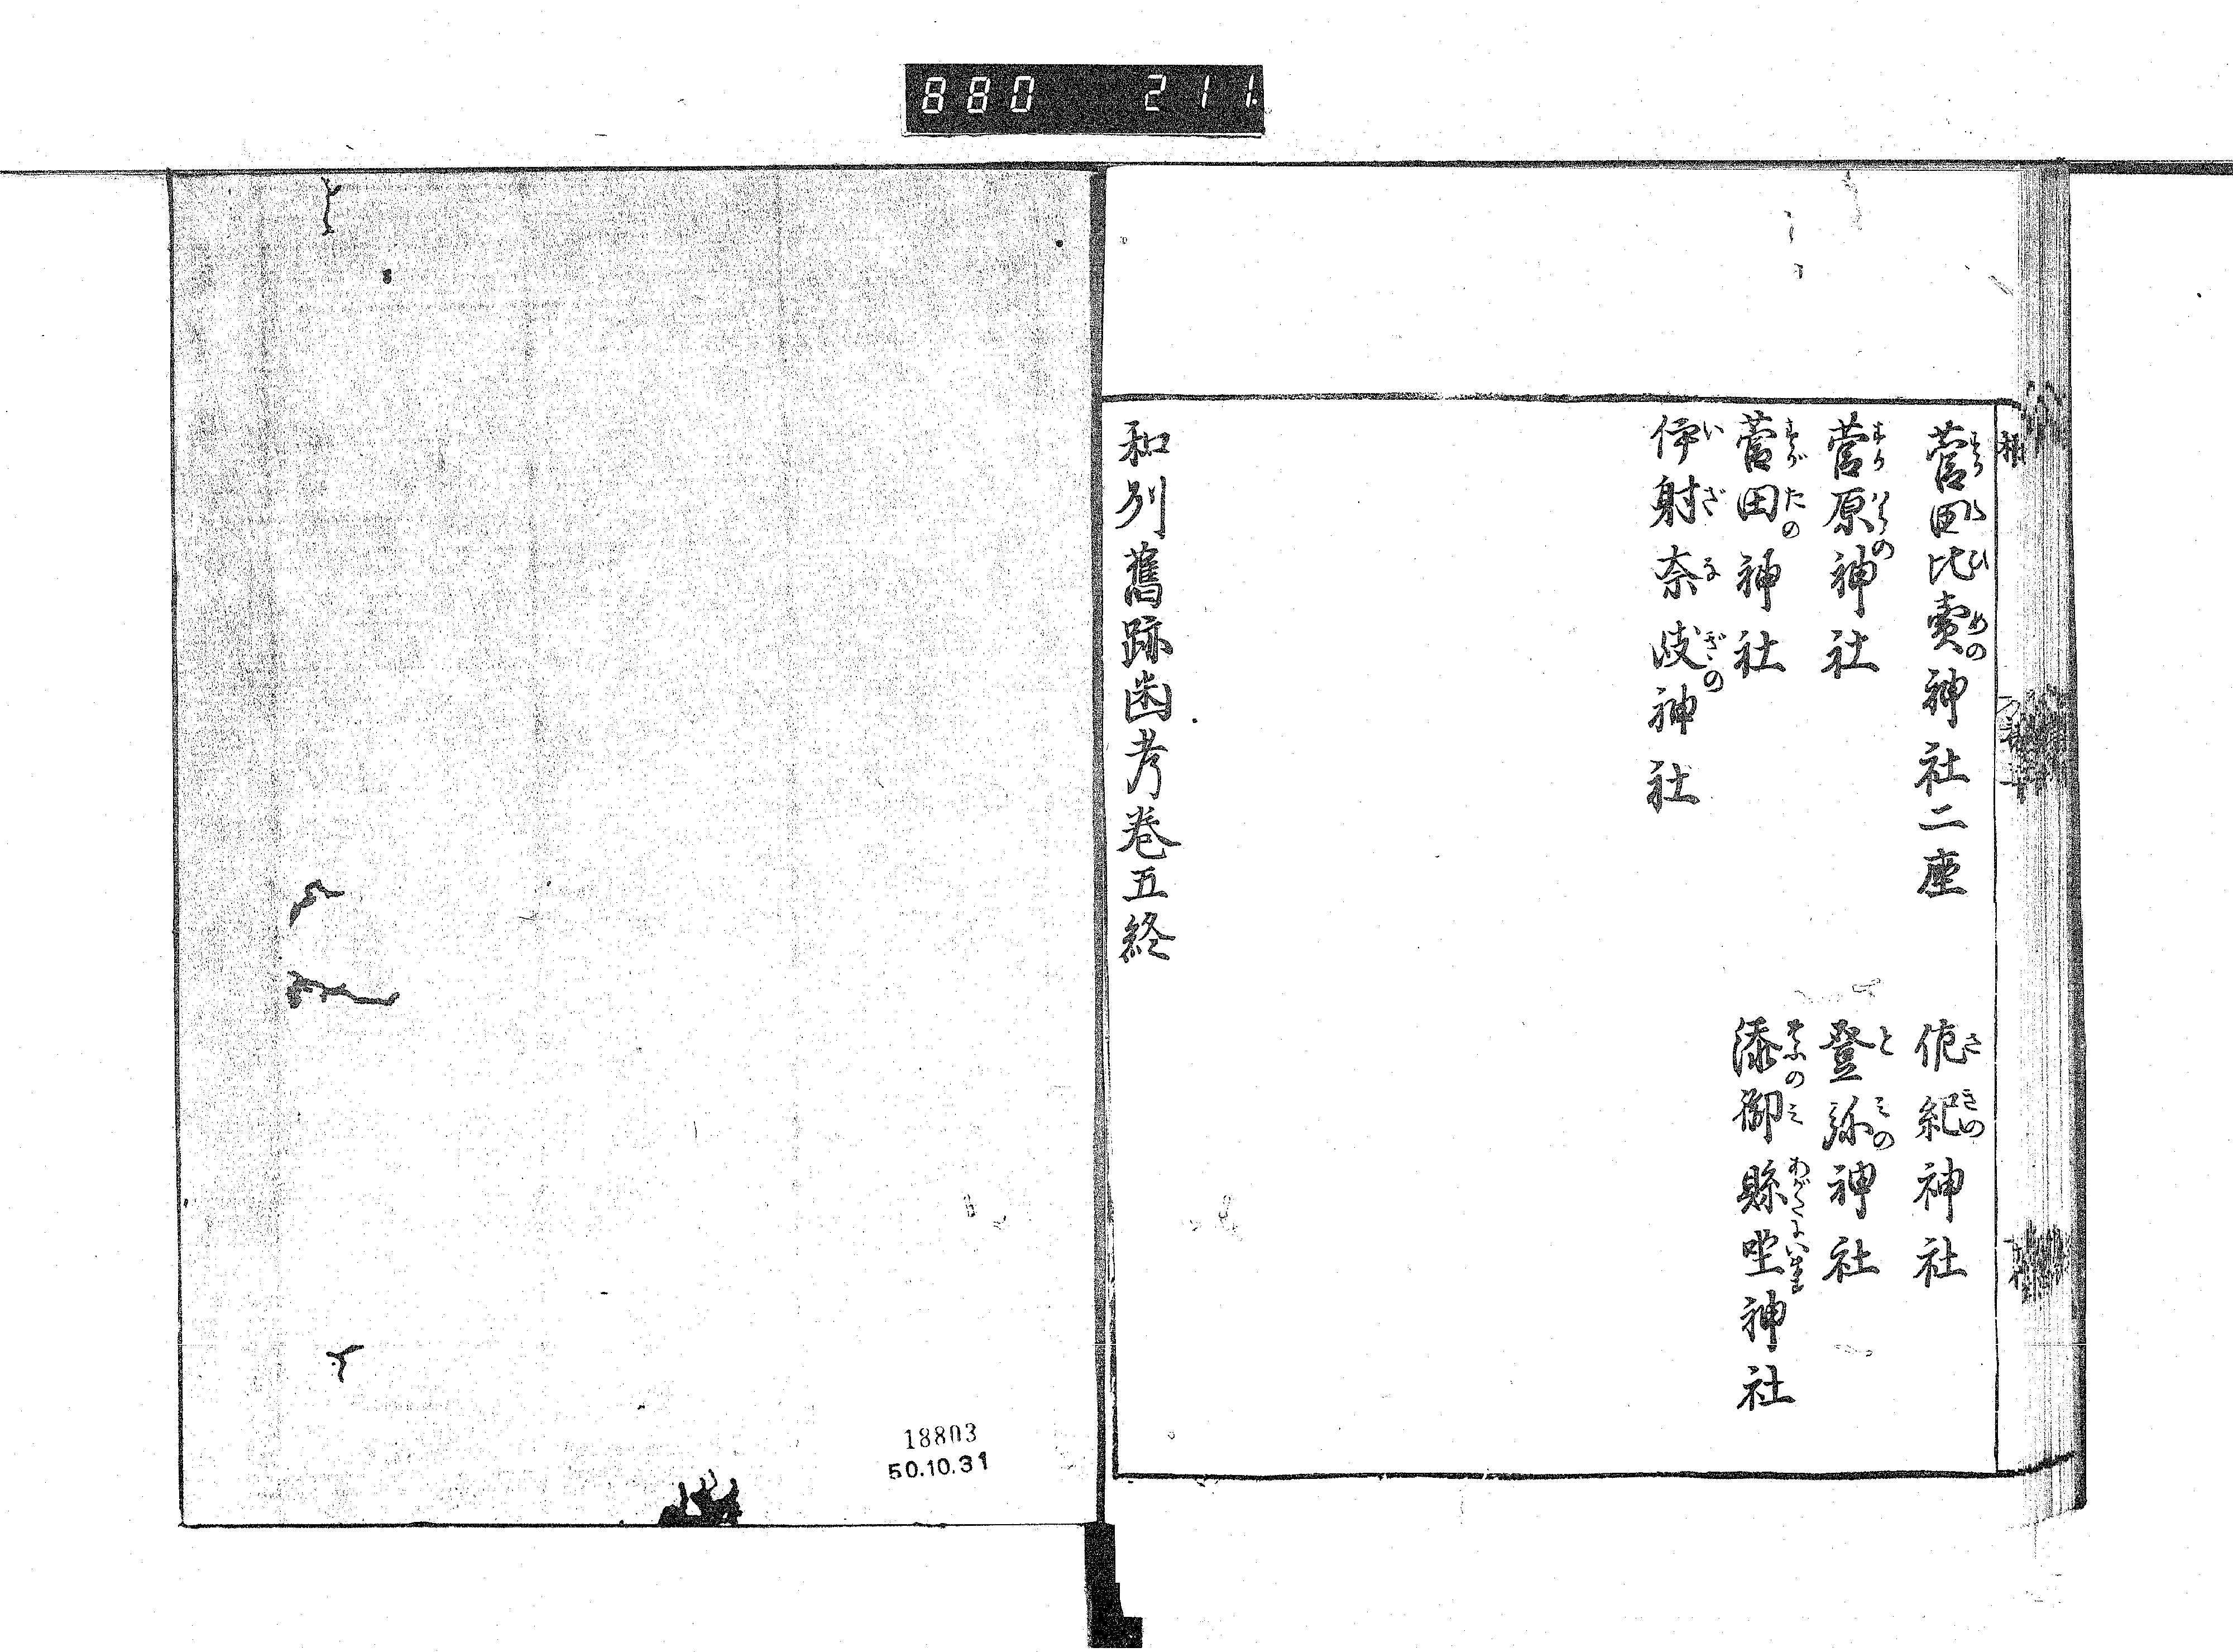 880 211.
菅田比賣神社二座
佐紀神社
菅原神社
登弥神社
菅田神社
添御縣坐神社
伊射奈岐神社
和州舊跡幽考巻五終
18803
50.10.31